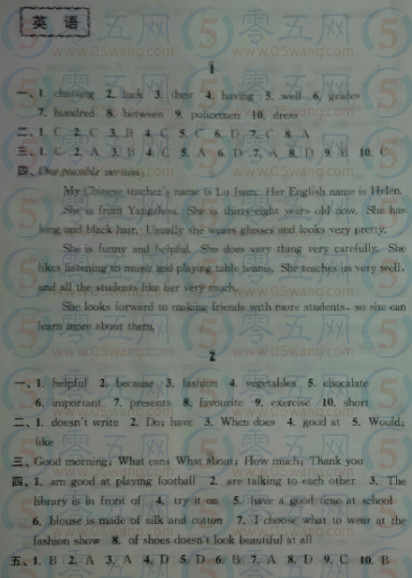 英 语
1
一、1. chatting 2. luck 3. their 4. having 5. well 6. grades
7. hundred 8. between 9. policemen 10. dress
二、1. C 2. C 3. B 4. C 5. C 6. D 7. C 8. A
三、1. C 2. A 3. B 4. C 5. A 6. D 7. A 8. D 9. B 10. C
四、One possible version:
My Chinese teacher's name is Lu Juan. Her English name is Helen.
She is from Yangzhou. She is thirty-eight years old now. She has
long and black hair. Usually she wears glasses and looks very pretty.
She is funny and helpful. She does very thing very carefully. She
likes listening to music and playing table tennis. She teaches us very well,
and all the students like her very much.
She looks forward to making friends with more students, so she can
learn more about them.
2
一、1. helpful 2. because 3. fashion 4. vegetables 5. chocalate
6. important 7. presents 8. favourite 9. exercise 10. short
二、1. doesn't write 2. Do; have 3. When does 4. good at 5. Would;
like
三、Good morning; What can; What about; How much; Thank you
四、1. am good at playing football 2. are talking to each other 3. The
library is in front of 4. try it on 5. have a good time at school
6. blouse is made of silk and cotton 7. I choose what to wear at the
fashion show 8. of shoes doesn't look beautiful at all
五、1. B 2. A 3. A 4. D 5. D 6. B 7. A 8. D 9. C 10. B
零五网
www.05wang.com